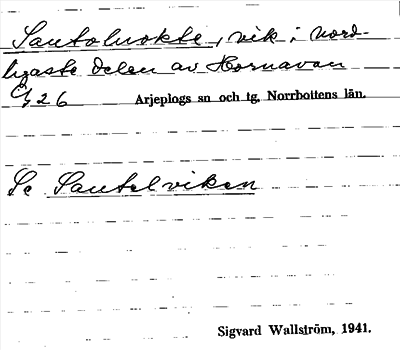 Sautoluokte, vik i nord-
ligaste delen av Hornavan
26 Arjeplogs sn och tg, Norrbottens län.
Se Sautelviken
Sigvard Wallström, 1941.